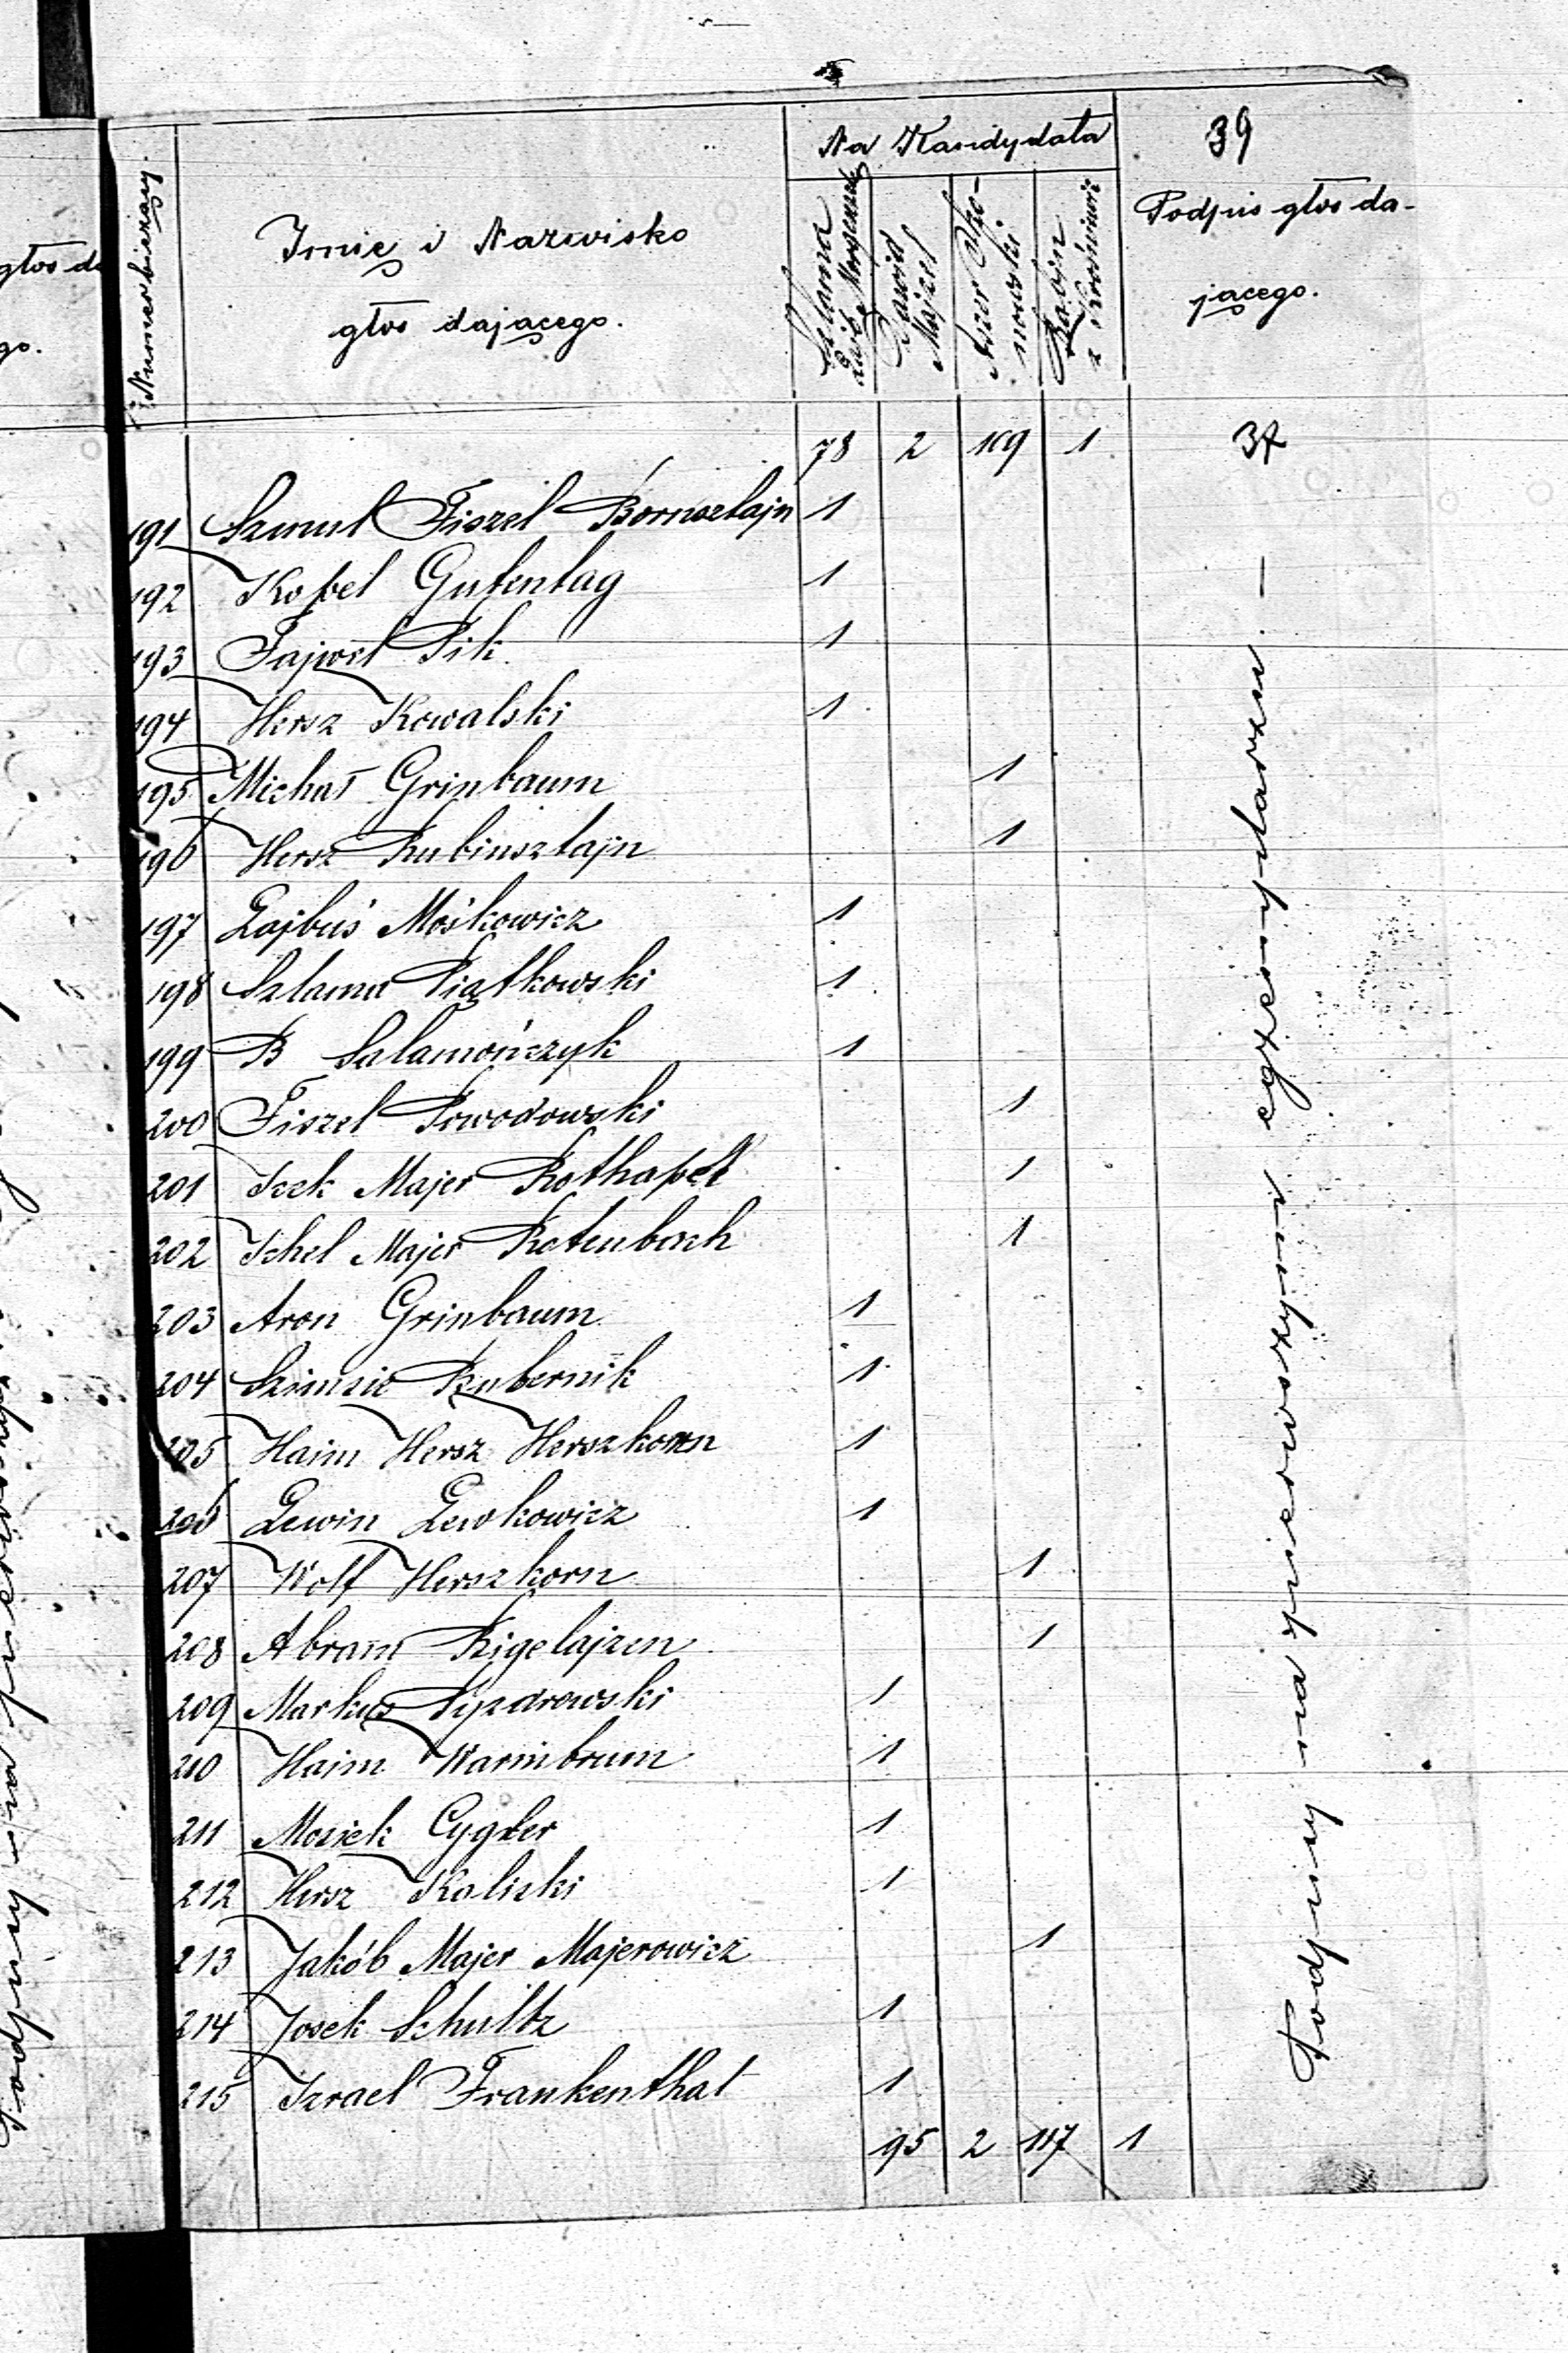 39
Na Kandydata
Numer bieżący
Imię i Nazwisko
głos dającego.
Szlama
Dawid
Majzel
Rabin
Podpis głos da-
jącego.
78 2 109 1 37
191 Szmul Fiszel Bornsztajn 1
192 Kopel Gutentag 1
193 Fajwel Pik 1
194 Hersz Kowalski 1
195 Michał Grinbaum 1
196 Hersz Rubinsztajn 1
197 Lajbuś Mośkowicz 1
198 Szlama Piątkowski 1
199 B Salamończyk 1
200 Fiszel Powodowski 1
201 Icek Majer Rothapel 1
202 Ichel Majer Rotenbach 1
203 Aron Grinbaum 1
204 Szimsie Rubernik 1
205 Haim Hersz Herszkorn 1
206 Lewin Lewkowicz 1
207 Wolf Herszkorn 1
208 Abram Rigelajzen 1
209 Markus Pyzdrowski 1
210 Haim Warmbrum 1
211 Mosiek Cygler 1
212 Hersz Kaliski 1
213 Jakób Majer Majerowicz 1
214 Josek Schultz 1
215 Izrael Frankenthal 1
95 2 117 1
Podpisy na pierwszym egzemplarzu. —